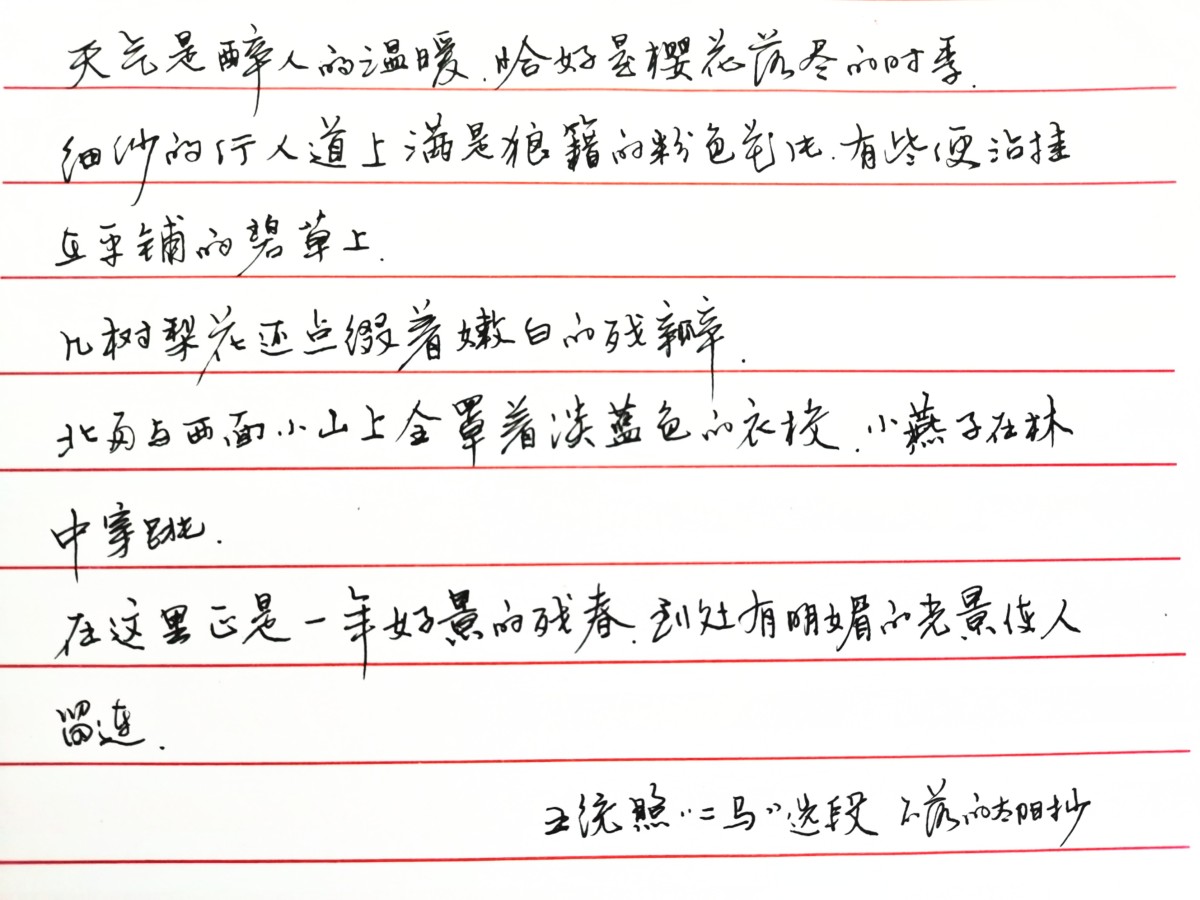 天气是醉人的温暖.恰好是樱花落尽的时季.
细沙的行人道上满是狼籍的粉色花片.有些便沾挂
在平铺的碧草上.
几树梨花还点缀着嫩白的残瓣.
北面与西面小山上全罩着淡蓝色的衣披.小燕子在林
中穿跳.
在这里正是一年好景的残春.到处有明媚的光景使人
留连.
王统照“二马”选段 不落的太阳抄